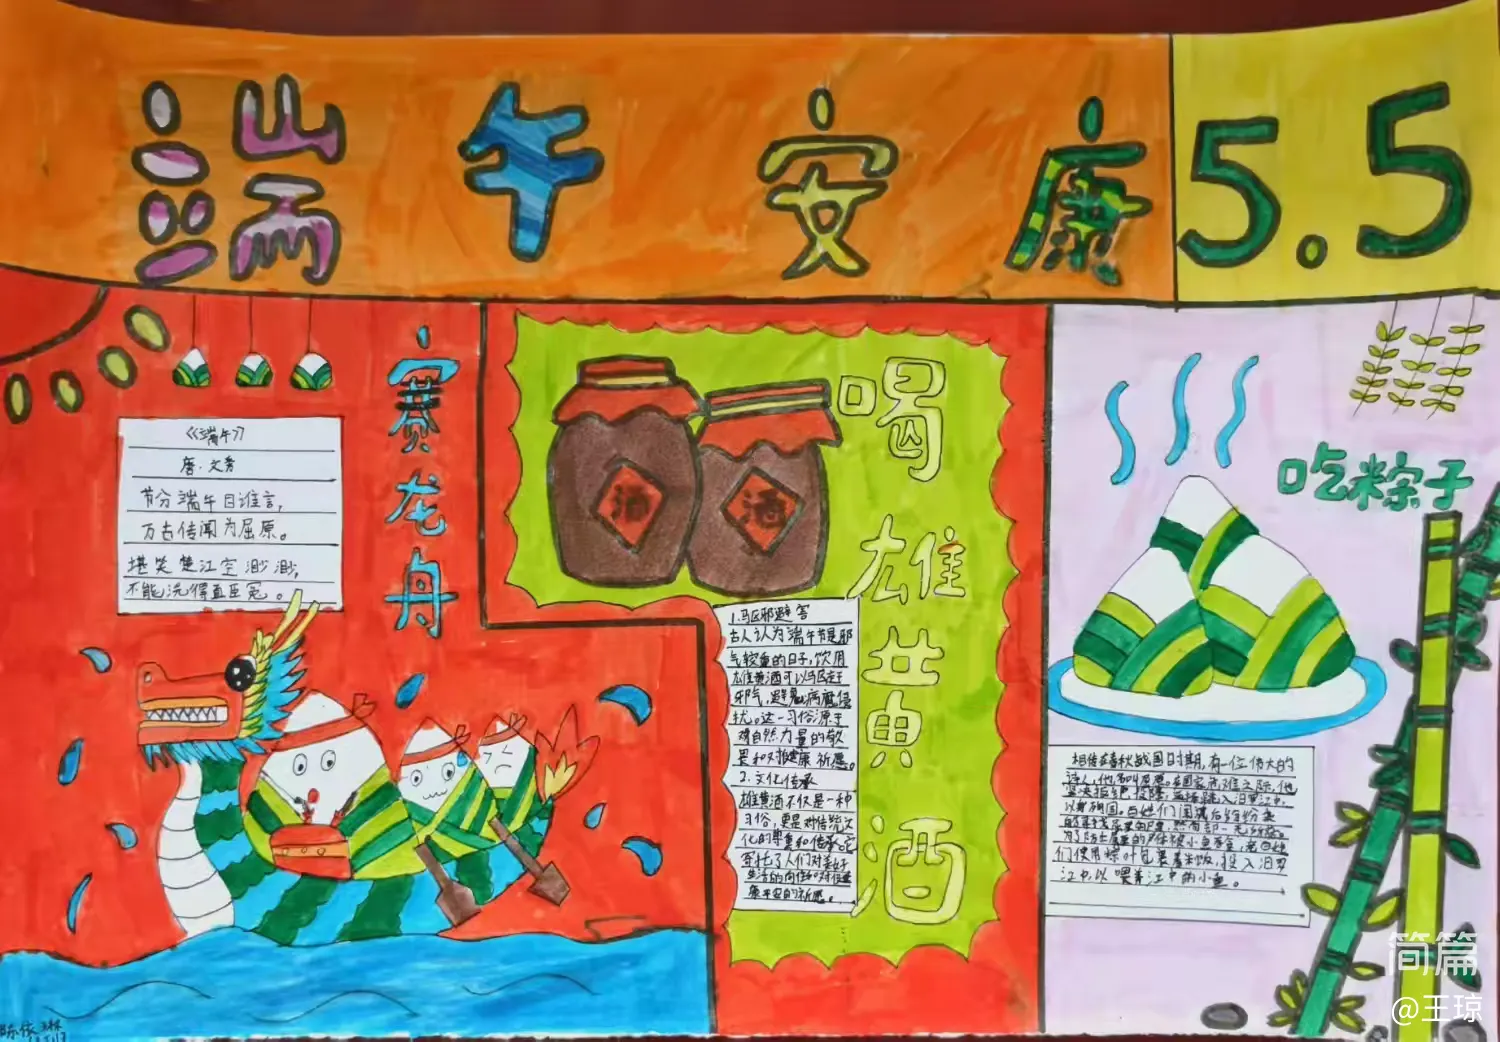 端午安康
5.5
赛龙舟
《端午》
唐.文秀
节分端午日谁言,
万古传闻为屈原。
堪笑楚江空渺渺,
不能洗得直臣冤。
喝雄黄酒
酒
酒
1.驱邪避害
古人认为端午节是邪
气较重的日子,饮用
雄黄酒可以驱走
邪气,避免病魔侵
扰。这一习俗源于
对自然力量的敬
畏和对健康祈愿。
2.文化传承
雄黄酒不仅是一种
习俗,更是对传统文
化的尊重和传承。它
寄托了人们对美好
生活的向往和对健康
平安的祈愿。
吃粽子
相传在春秋战国时期,有一位伟大的
诗人,他名叫屈原。在国家危难之际,他
江中,以喂养江中的小鱼。
简篇
@王琼